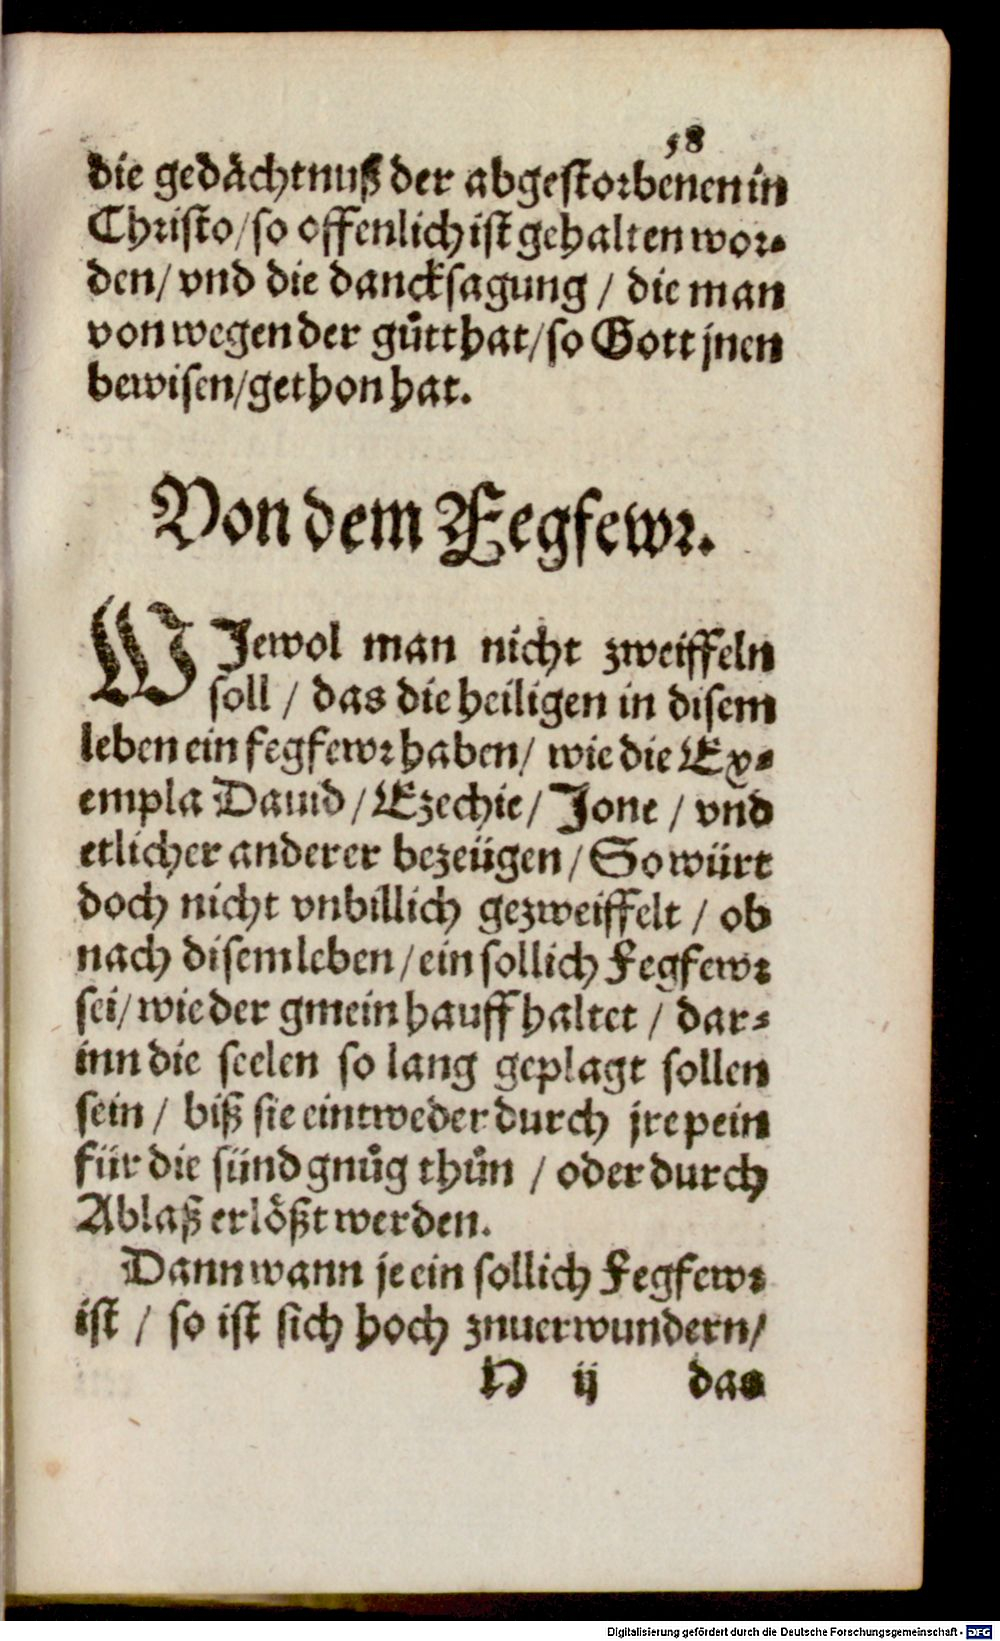 58
die gedächtnuß der abgestorbenen in
Christo/so offenlich ist gehalten wor⸗
den/ vnd die dancksagung / die man
von wegen der gůtthat/so Gott jnen
bewisen/gethon hat.
Von dem Fegfewr.
WIewol man nicht zweiffeln
soll / das die heiligen in disem
leben ein fegfewr haben/ wie die Ex⸗
empla Dauid / Ezechie/ Jone / vnd
etlicher anderer bezeügen / So würt
doch nicht vnbillich gezweiffelt / ob
nach disem leben /ein sollich Fegfewr
sei/ wie der gmein hauff haltet / dar⸗
inn die seelen so lang geplagt sollen
sein / biß sie eintweder durch jre pein
für die sünd gnůg thůn / oder durch
Ablaß erlößt werden.
Dann wann je ein sollich Fegfewr
ist / so ist sich hoch znuerwundern/
H ij das
Digitalisierung gefördert durch die Deutsche Forschungsgemeinschaft - DFG